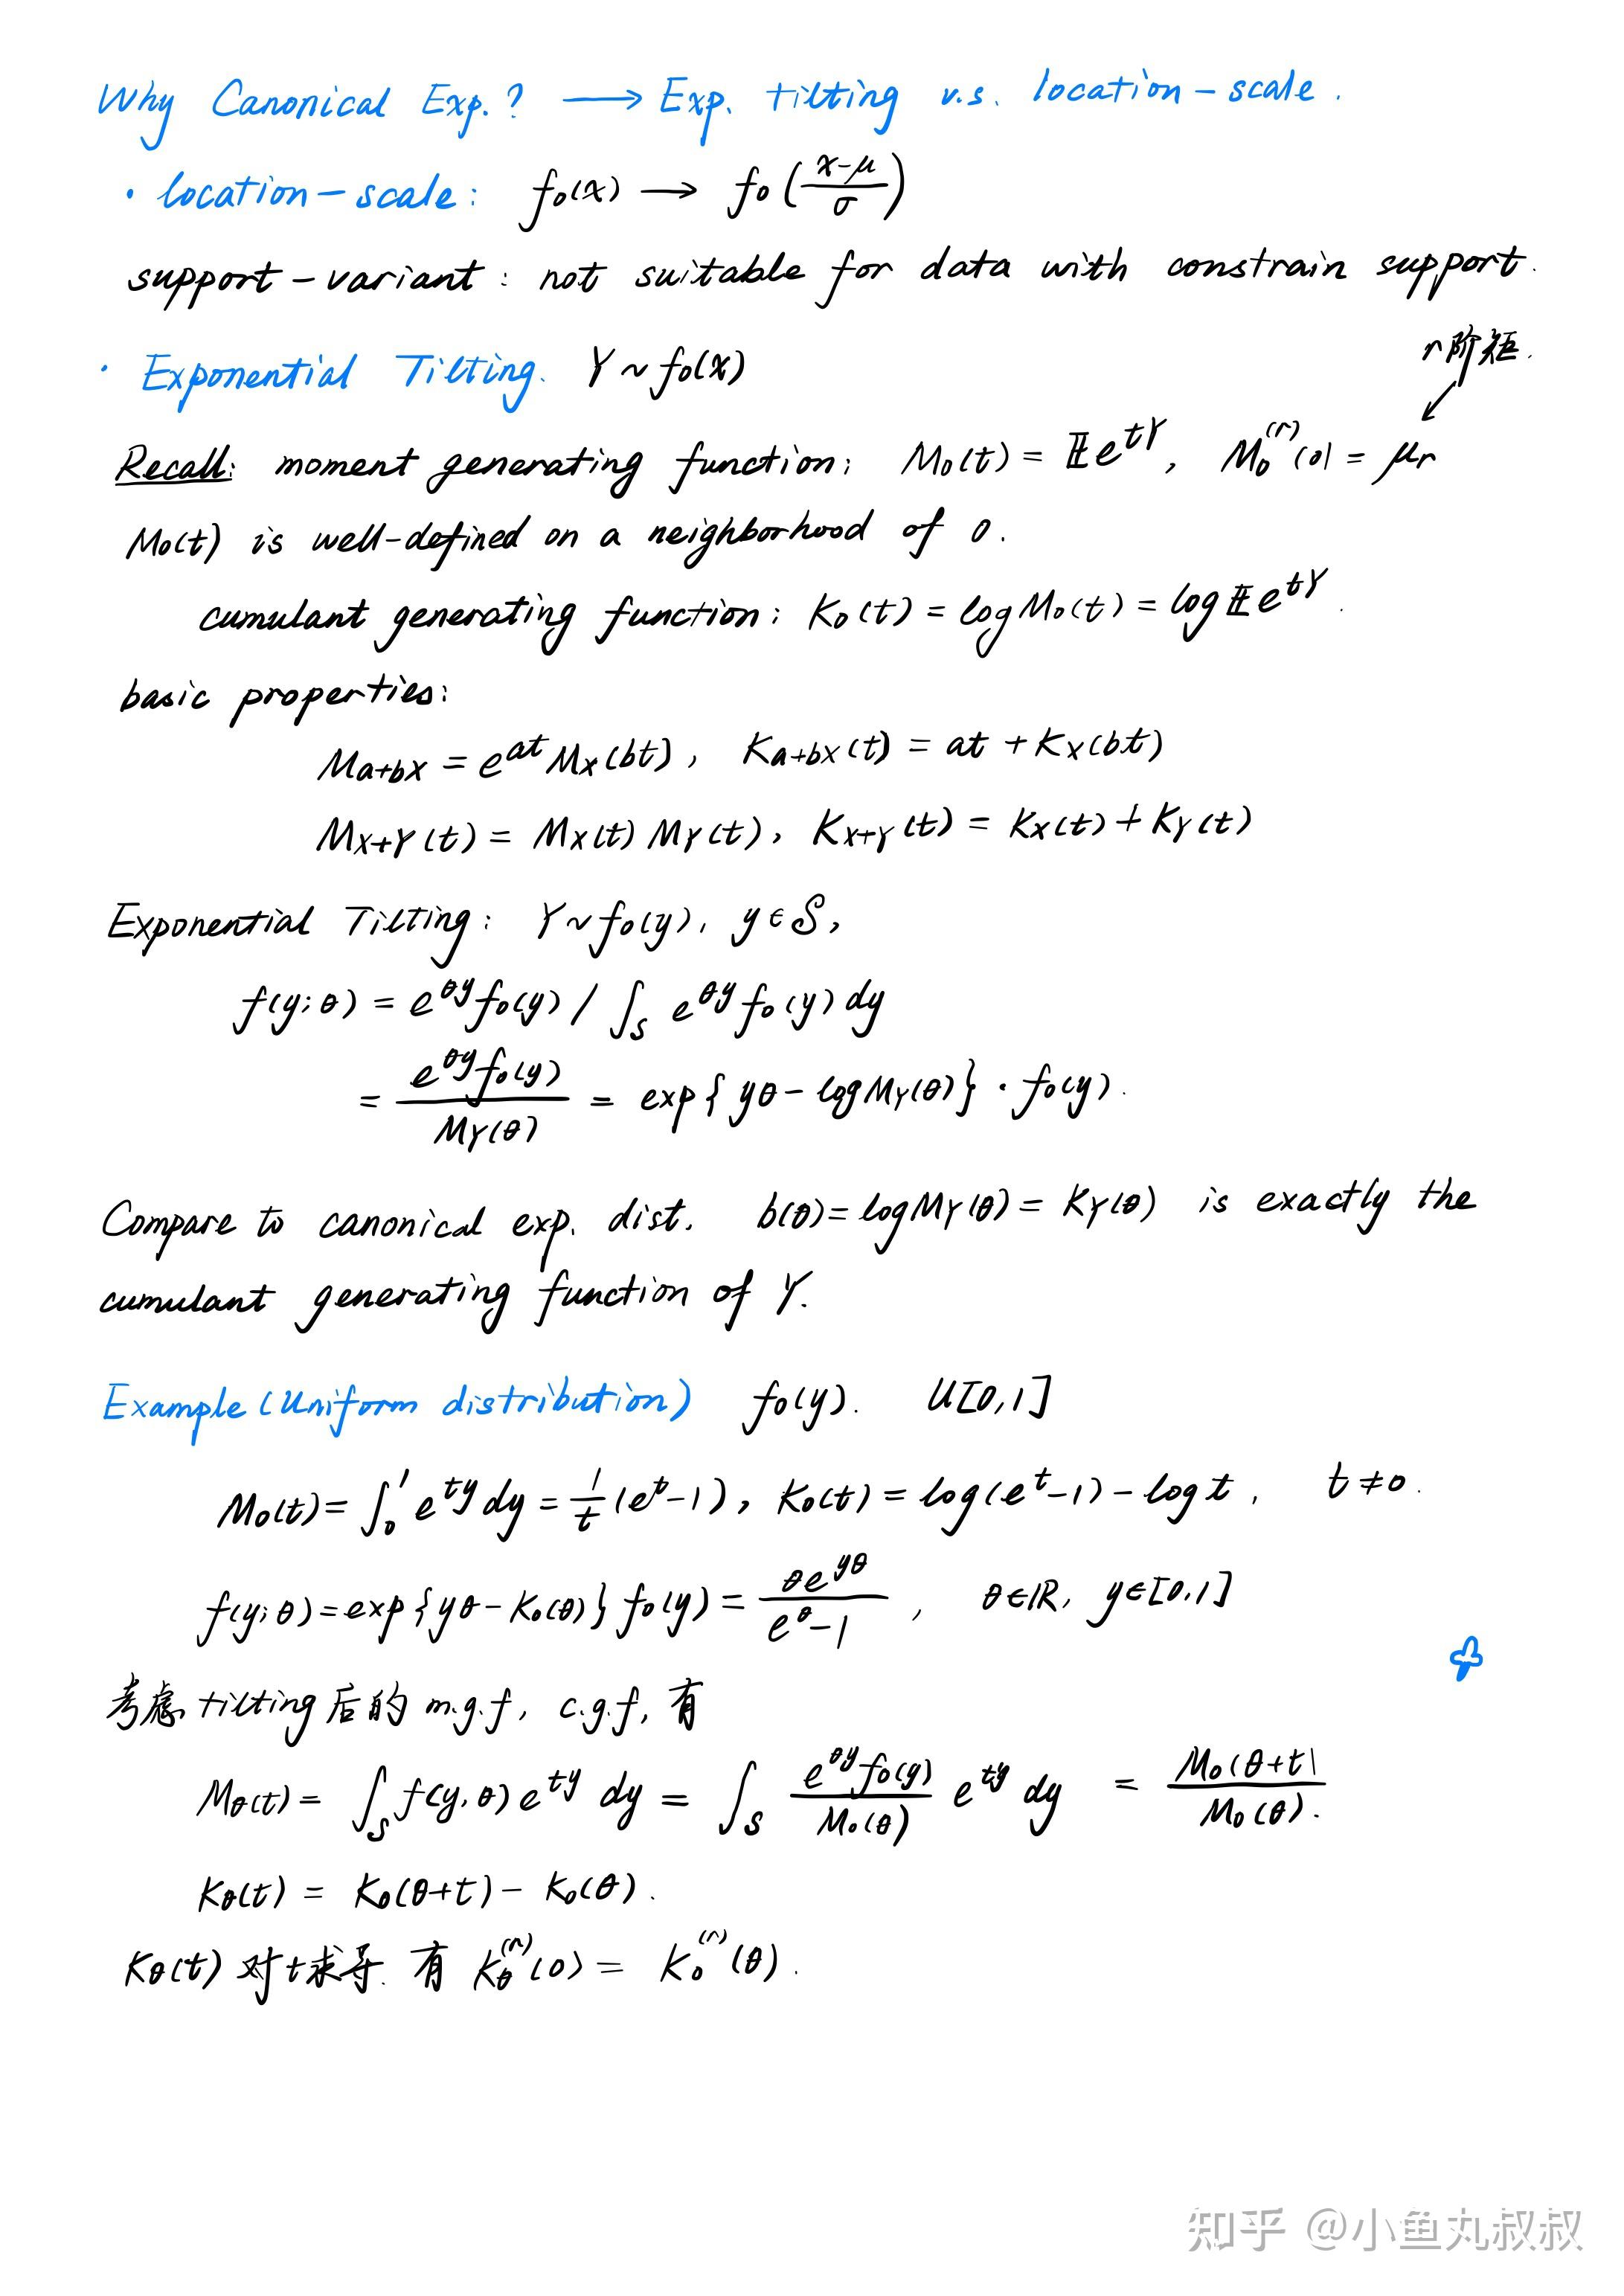 Why Canonical Exp.? → Exp. tilting v.s. location-scale.
· location-scale: f₀(x) → f₀((x-μ)/σ)
support-variant: not suitable for data with constrain support.
r阶矩.
· Exponential Tilting. Y~f₀(x)
Recall: moment generating function: M₀(t) = 𝔼e^{tY}, M₀^{(r)}(0) = μᵣ
M₀(t) is well-defined on a neighborhood of 0.
cumulant generating function: K₀(t) = log M₀(t) = log 𝔼e^{tY}.
basic properties:
M_{a+bX} = e^{at} M_X(bt), K_{a+bX}(t) = at + K_X(bt)
M_{X+Y}(t) = M_X(t) M_Y(t), K_{X+Y}(t) = K_X(t) + K_Y(t)
Exponential Tilting: Y~f₀(y), y∈S,
f(y;θ) = e^{θy}f₀(y) / ∫_S e^{θy}f₀(y) dy
= e^{θy}f₀(y) / M_Y(θ) = exp{yθ - log M_Y(θ)} · f₀(y).
Compare to canonical exp. dist. b(θ) = log M_Y(θ) = K_Y(θ) is exactly the
cumulant generating function of Y.
Example (Uniform distribution) f₀(y). U[0,1]
M₀(t) = ∫₀¹ e^{ty} dy = 1/t (e^t - 1), K₀(t) = log(e^t - 1) - log t, t≠0.
f(y;θ) = exp{yθ - K₀(θ)} f₀(y) = θe^{yθ} / (e^θ - 1), θ∈ℝ, y∈[0,1]
考虑tilting后的 m.g.f, c.g.f, 有
M_θ(t) = ∫_S f(y,θ) e^{ty} dy = ∫_S (e^{θy}f₀(y) / M₀(θ)) e^{ty} dy = M₀(θ+t) / M₀(θ).
K_θ(t) = K₀(θ+t) - K₀(θ).
K_θ(t) 对t求导. 有 K_θ^{(r)}(0) = K₀^{(r)}(θ).
知乎 @小鱼丸叔叔